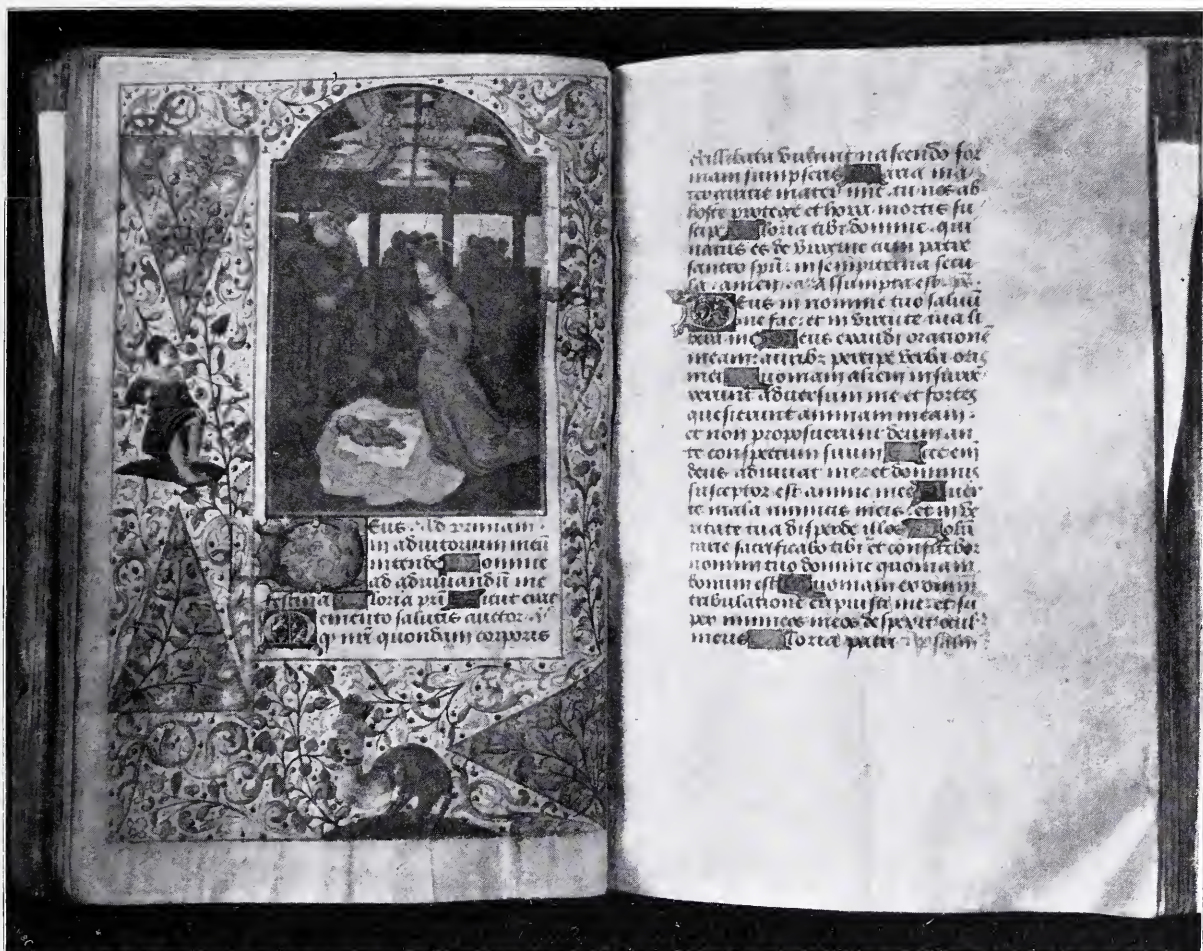 Deus Ad primam
in adiutorium meū
intende Domine
ad adiuuandū me
festina Gloria pr̄i Sicut erat
Memento salutis auctor
q̄ nr̄i quondam corporis
exillibata virgine nascendo for
mam sumpseris Maria ma
ter gratie mater mīe tu nos ab
hoste protege et hora mortis su
scipe Gloria tibi domine qui
natus es de virgine cum patre
sancto spū in sempiterna secu
la amen Assumpta est ps̄
Deus in nomine tuo saluū
me fac et in virtute tua
me Deus exaudi orationē
meam auribꝫ percipe verba oris
mei Quoniam alieni insurre
xerunt aduersum me et fortes
quesierunt animam meam
et non proposuerunt deum an
te conspectum suum Ecce eni
deus adiuuat me et dominus
susceptor est anime mee Auer
te mala inimicis meis et in ve
ritate tua disperde illos Volū
tarie sacrificabo tibi et confitebor
nomini tuo domine quoniam
bonum est Quoniam ex omni
tribulatione eripuisti me et su
per inimicos meos despexit ocul
meus Gloria patri